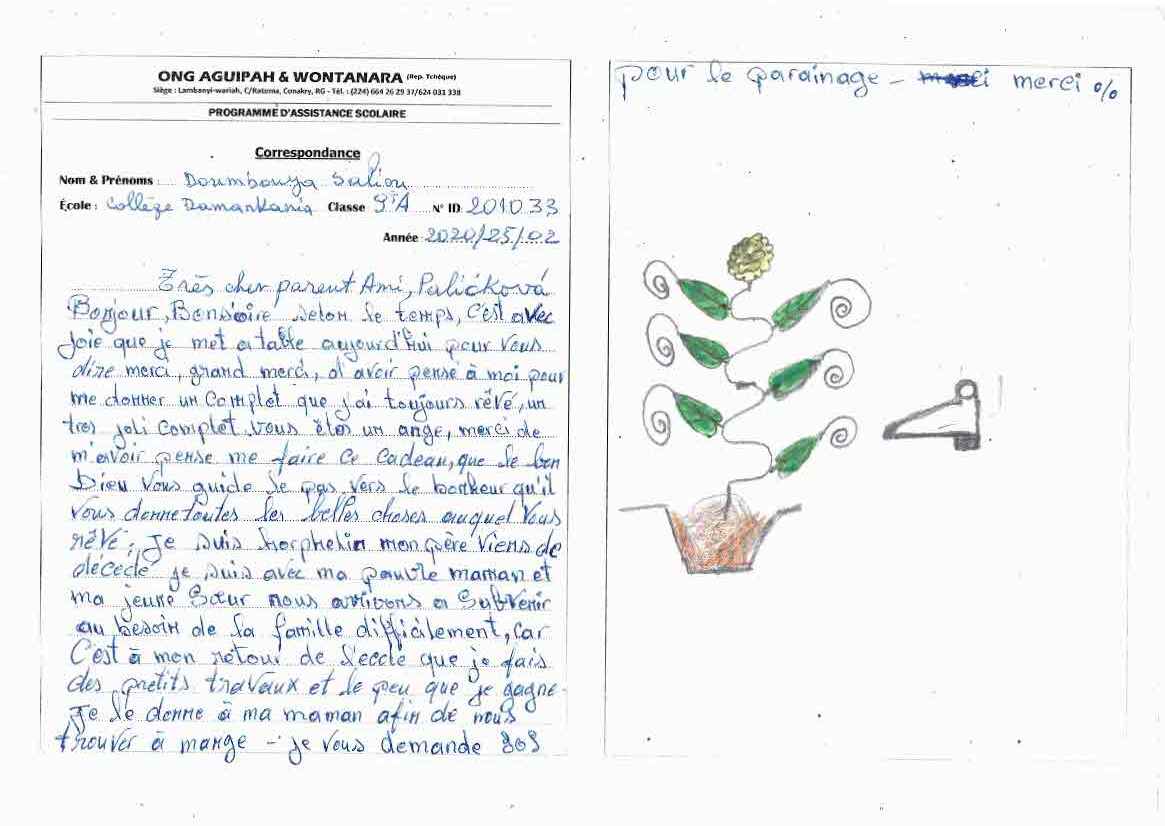 ONG AGUIPAH & WONTANARA (Rep. Tchèque)
Siège : Lambanyi-wariah, C/Ratoma, Conakry, RG - Tél. : (224) 664 26 29 37/624 031 338
PROGRAMME D'ASSISTANCE SCOLAIRE
Correspondance
Nom & Prénoms : Doumbouya Saliou
École : Collège Damankania Classe 9èA N° ID 201033
Année 2020/25/02
Très cher parent Ami, Paličková
Bonjour, Bonsoire selon le temps, C'est avec
joie que je met a table aujourd'hui pour vous
dire merci, grand merci, d'avoir pensé à moi pour
me donner un Complet que j'ai toujours rêvé, un
tres joli Complet vous êtes un ange, merci de
m'avoir pensé me faire ce cadeau, que le bon
Dieu vous guide le pas vers le bonheur qu'il
vous donne toutes les belles choses auquel vous
rêvé. Je suis horphelin mon père viens de
décédé je suis avec ma pauvre maman et
ma jeune Sœur nous arrivons a subvenir
au besoin de la famille difficilement, car
C'est à mon retour de l'ecole que je fais
des pretits travaux et le peu que je gagne
Je le donne à ma maman afin de nous
trouver à mange - je vous demande SOS
pour le parainage - merci %